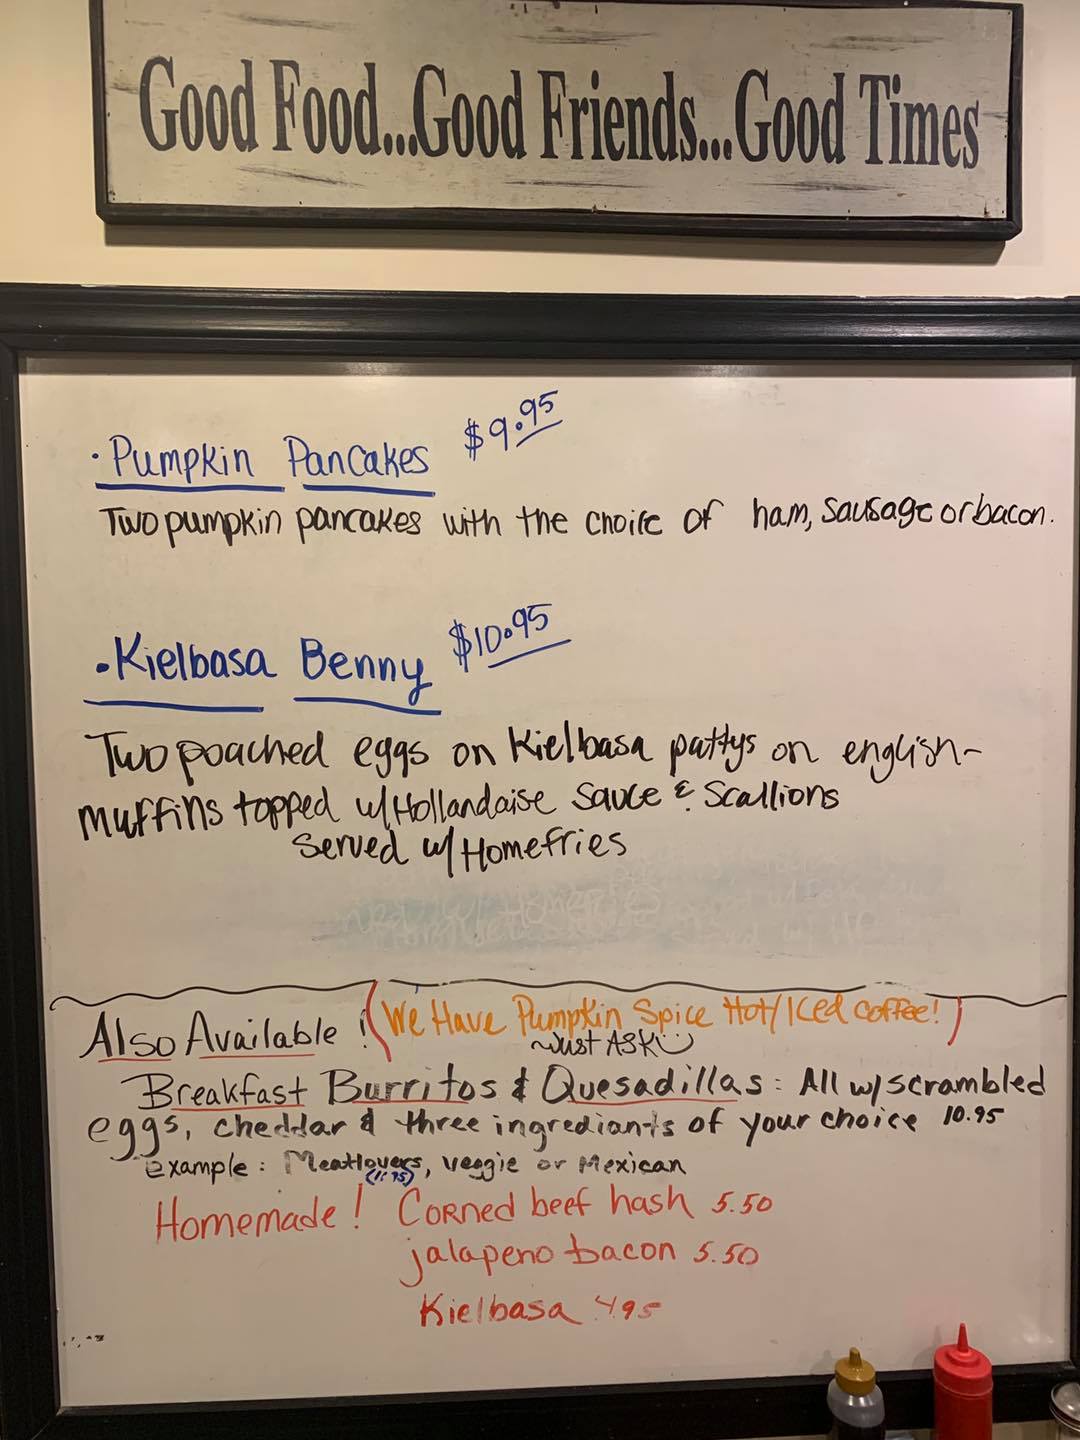 Good Food...Good Friends...Good Times
· Pumpkin Pancakes $9.95
Two pumpkin pancakes with the choice of ham, sausage or bacon.
· Kielbasa Benny $10.95
Two poached eggs on Kielbasa pattys on english-
muffins topped w/Hollandaise Sauce & Scallions
Served w/Homefries
Also Available! (We Have Pumpkin Spice Hot/Iced coffee!)
~Just ASK
Breakfast Burritos & Quesadillas: All w/scrambled
eggs, cheddar & three ingrediants of your choice 10.95
example: Meatlovers, veggie or Mexican
(11.95)
Homemade! Corned beef hash 5.50
jalapeno bacon 5.50
Kielbasa 4.95